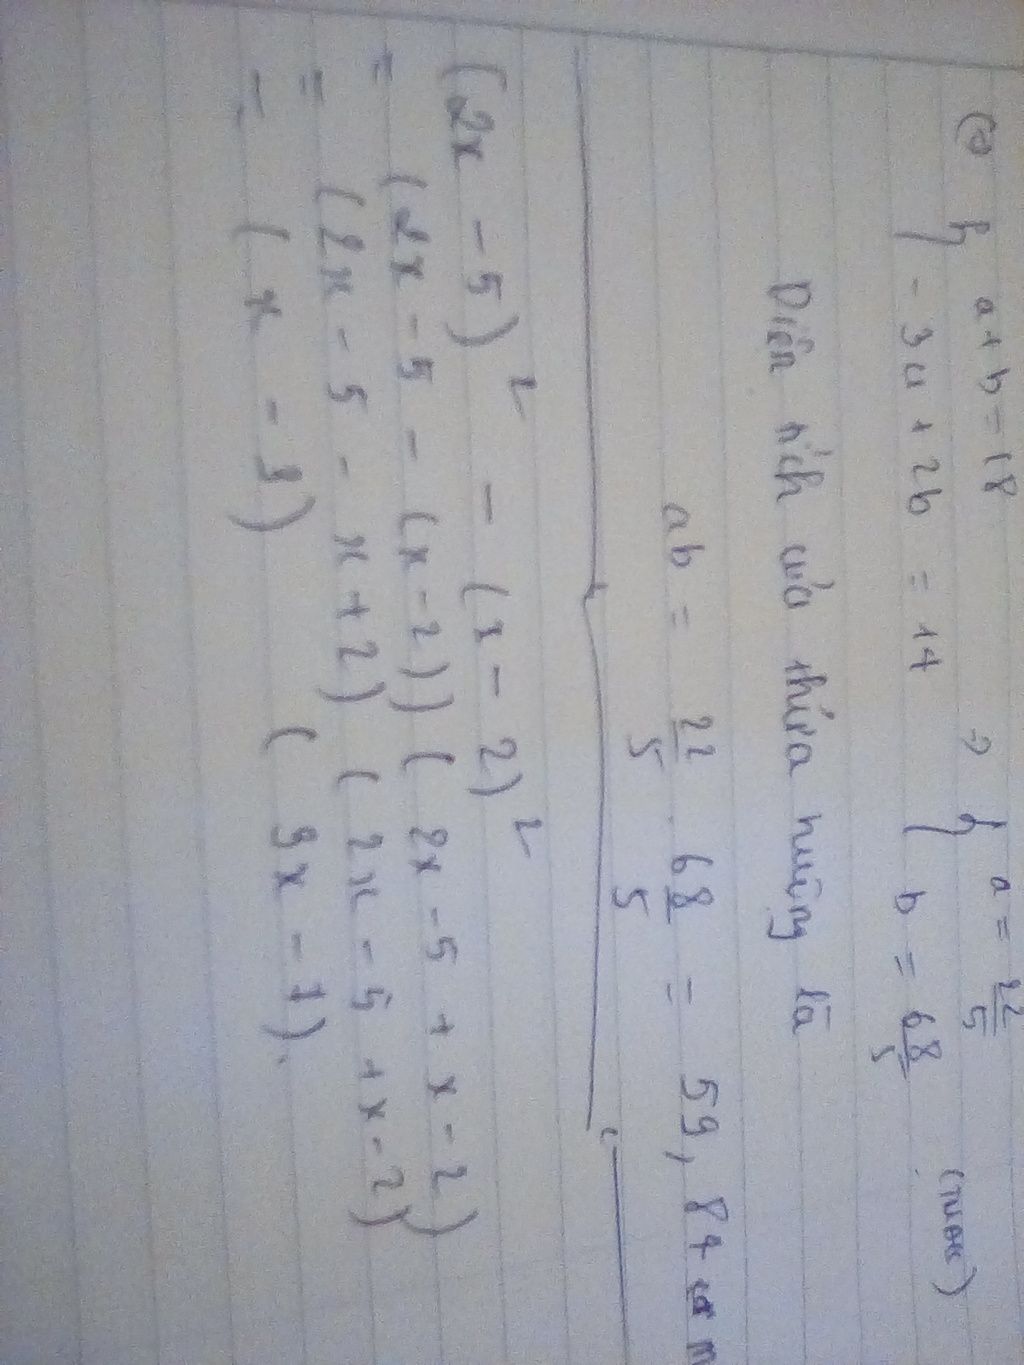 (=) { a + b = 18 → { a = 22/5
{ -3a + 2b = 14 { b = 68/5 (TMĐK)
Diện tích của thửa ruộng là
ab = 22/5 . 68/5 = 59,84 m
(2x - 5)² - (x - 2)²
= (2x - 5 - (x - 2)) (2x - 5 + x - 2)
= (2x - 5 - x + 2) (2x - 5 + x - 2)
= (x - 3) (3x - 7).